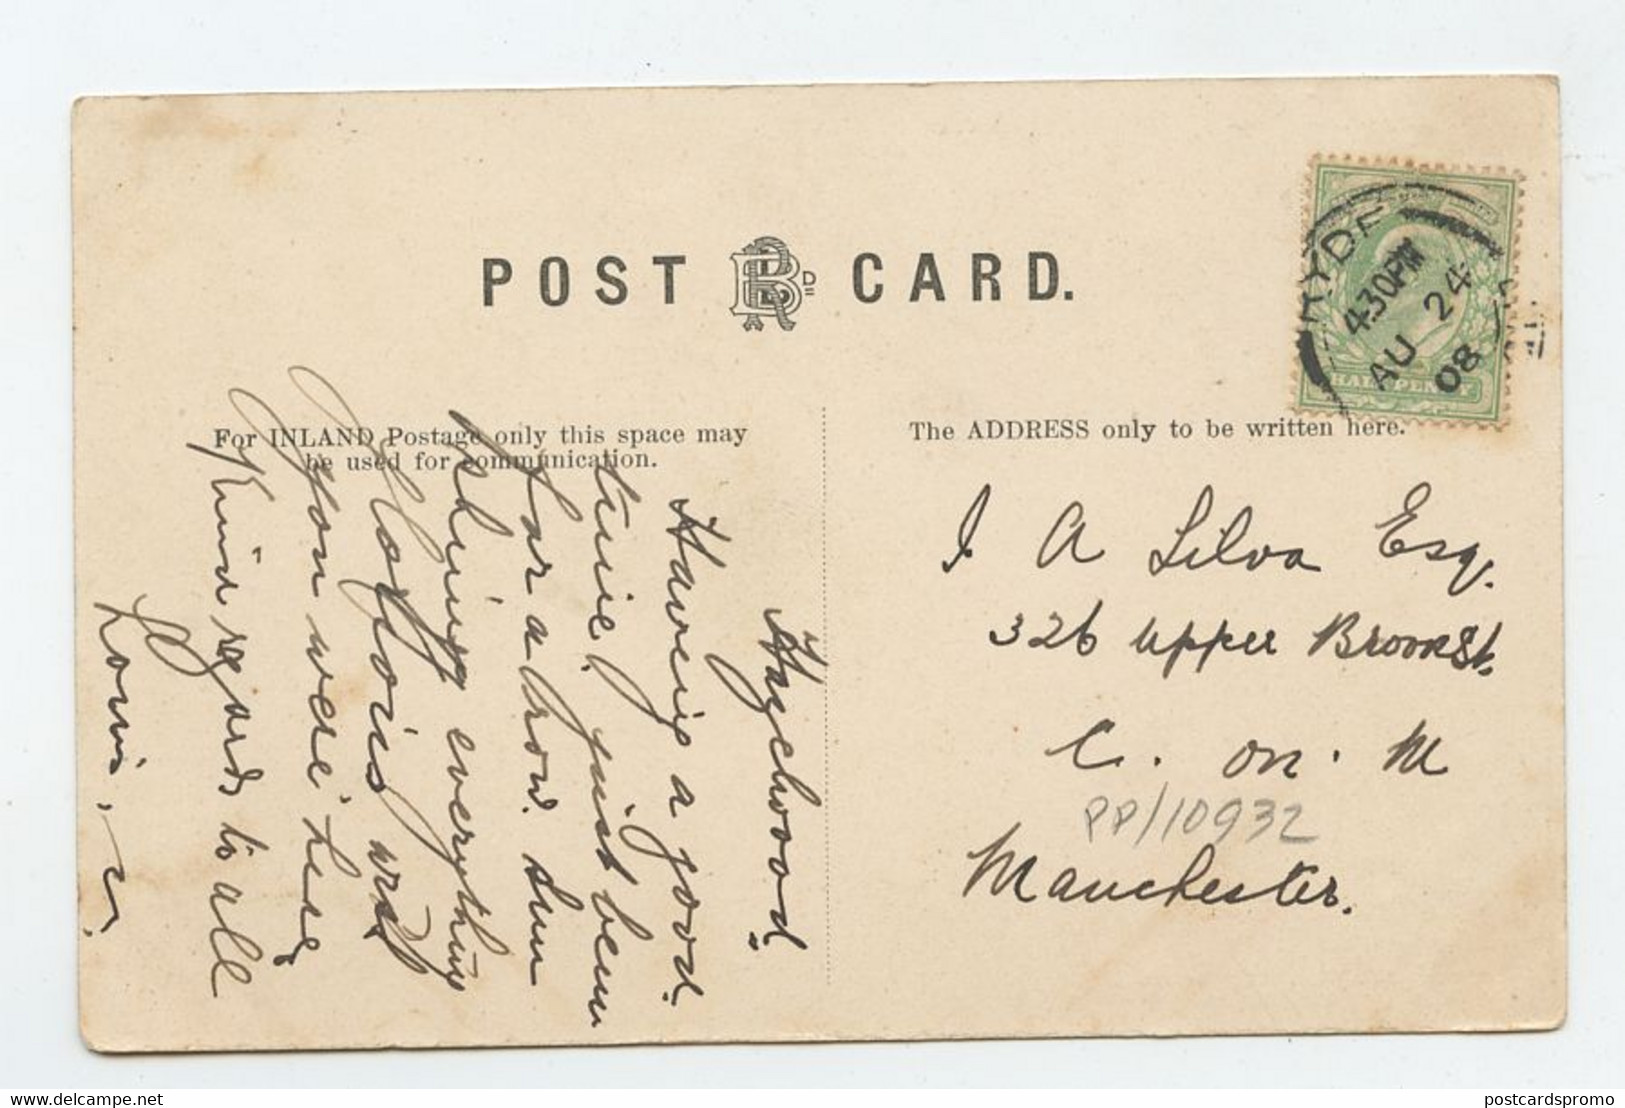 POST CARD.
For INLAND Postage only this space may
be used for communication.
The ADDRESS only to be written here.
RYDE
4.30PM
AU 24
08
HALF PENNY
Haychood
Having a good
time. just been
for a row. sun
shining everything
glorious wish
you were here
Kind regards to all
Louis,
J A Silva Esq.
326 upper Brook St.
C. on. M
PP/10932
Manchester.
www.delcampe.net
postcardspromo